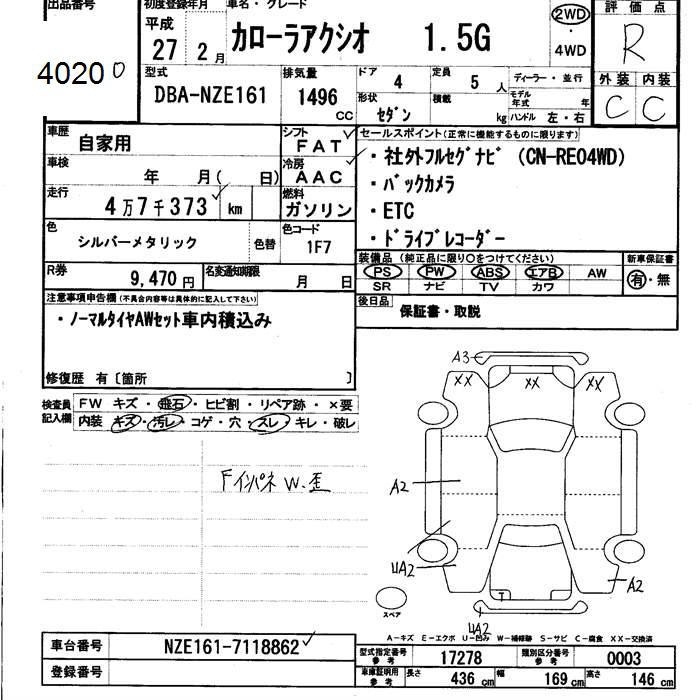 出品番号
40200
初度登録年月 車名・グレード
平成 27 2月
カローラアクシオ 1.5G
2WD
4WD
評価点
R
外装 内装
C C
型式
DBA-NZE161
排気量
1496 CC
ドア 4
定員 5 人
形状 セダン
積載 kg
ディーラー・並行
モデル年式 年
ハンドル 左・右
車歴
自家用
シフト
FAT
車検
年 月( 日)
冷房
AAC
走行
4万7千373 km
燃料
ガソリン
色
シルバーメタリック
色替
色コード
1F7
R券
9,470円
名変通知期限
月 日
セールスポイント(正常に機能するものに限ります)
・社外フルセグナビ (CN-RE04WD)
・バックカメラ
・ETC
・ドライブレコーダー
装備品 (純正品に限り○をつけてください)
PS PW ABS エアB AW
SR ナビ TV カワ
新車保証書
有・無
後日品
保証書・取説
注意事項申告欄(不具合内容等は具体的に記入して下さい)
・ノーマルタイヤAWセット車内積込み
修復歴 有〔箇所 〕
検査員記入欄
FW キズ・飛石・ヒビ割・リペア跡・×要
内装 キズ・汚レ・コゲ・穴・スレ・キレ・破レ
Fインパネ W.歪
A3
XX XX XX
A2
UA2
T
A2
UA2
スペア
A-キズ E-エクボ U-凹み W-補修跡 S-サビ C-腐食 XX-交換済
車台番号
NZE161-7118862
登録番号
型式指定番号 参考
17278
類別区分番号 参考
0003
車庫証明用 参考
長さ 436 cm
幅 169 cm
高さ 146 cm